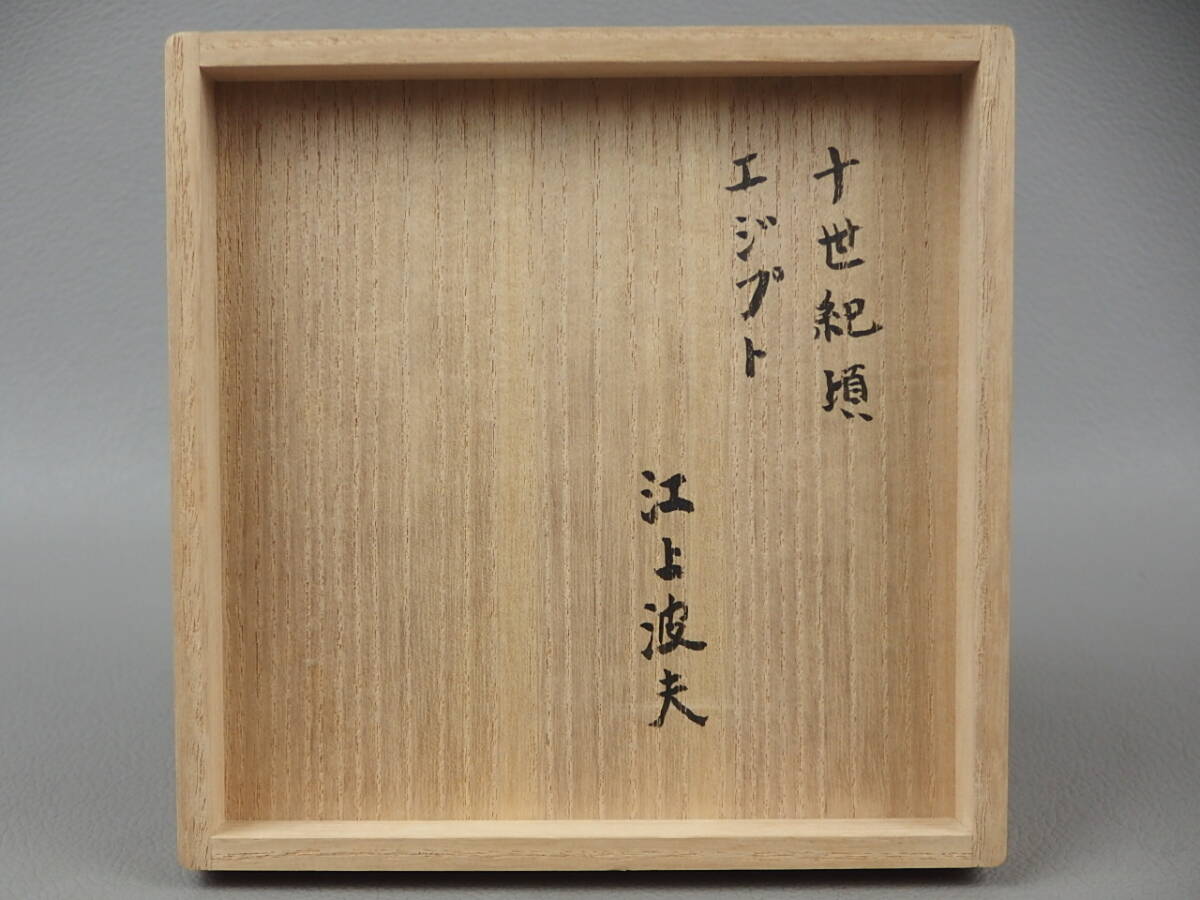 十世紀頃
エジプト
江上波夫